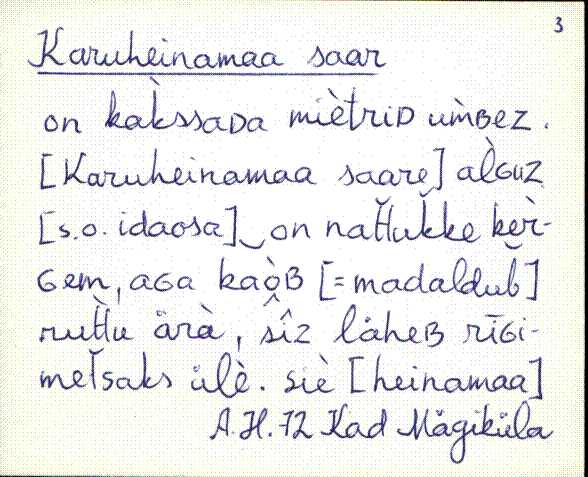 3
Karuheinamaa saar
on kàkssaᴅa mièt̀riᴅ ùmʙez.
[Karuheinamaa saare] alGuz
[s.o. idaosa] on nat̆tuk̆ke kèr-
Gem, aGa kaòʙ [=madaldub]
rut̆tu ärà, sîz lähäʙ rīGi-
met̆saks ülè. siè [heinamaa]
A.H. 72 Kad Mägiküla